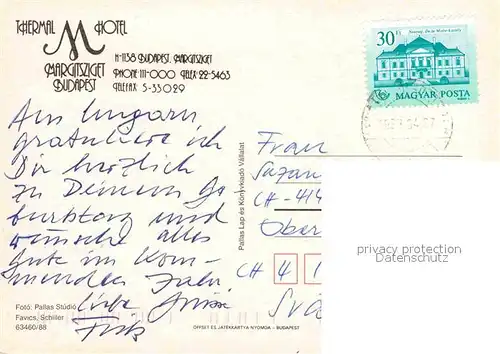 THERMAL HOTEL
MARGITSZIGET
BUDAPEST
H-1138 BUDAPEST. MARGITSZIGET
PHONE: 111-000 TELEX: 22-5463
TELEFAX: 5-33029
30 Ft
MAGYAR POSTA
Aus Ungarn
gratuliere ich
Dir herzlich
zu Deinem Ge
burtstag und
wünsche alles
Gute im Kom-
menden Jahr.
Liebe Grüsse
Frau
Suzan
CH-414
Ober
CH 4 1
Pallas Lap és Könyvkiadó Vállalat
privacy protection
Datenschutz
Fotó: Pallas Stúdió
Favics, Schiller
63460/88
OFFSET ÉS JÁTÉKKÁRTYA NYOMDA – BUDAPEST